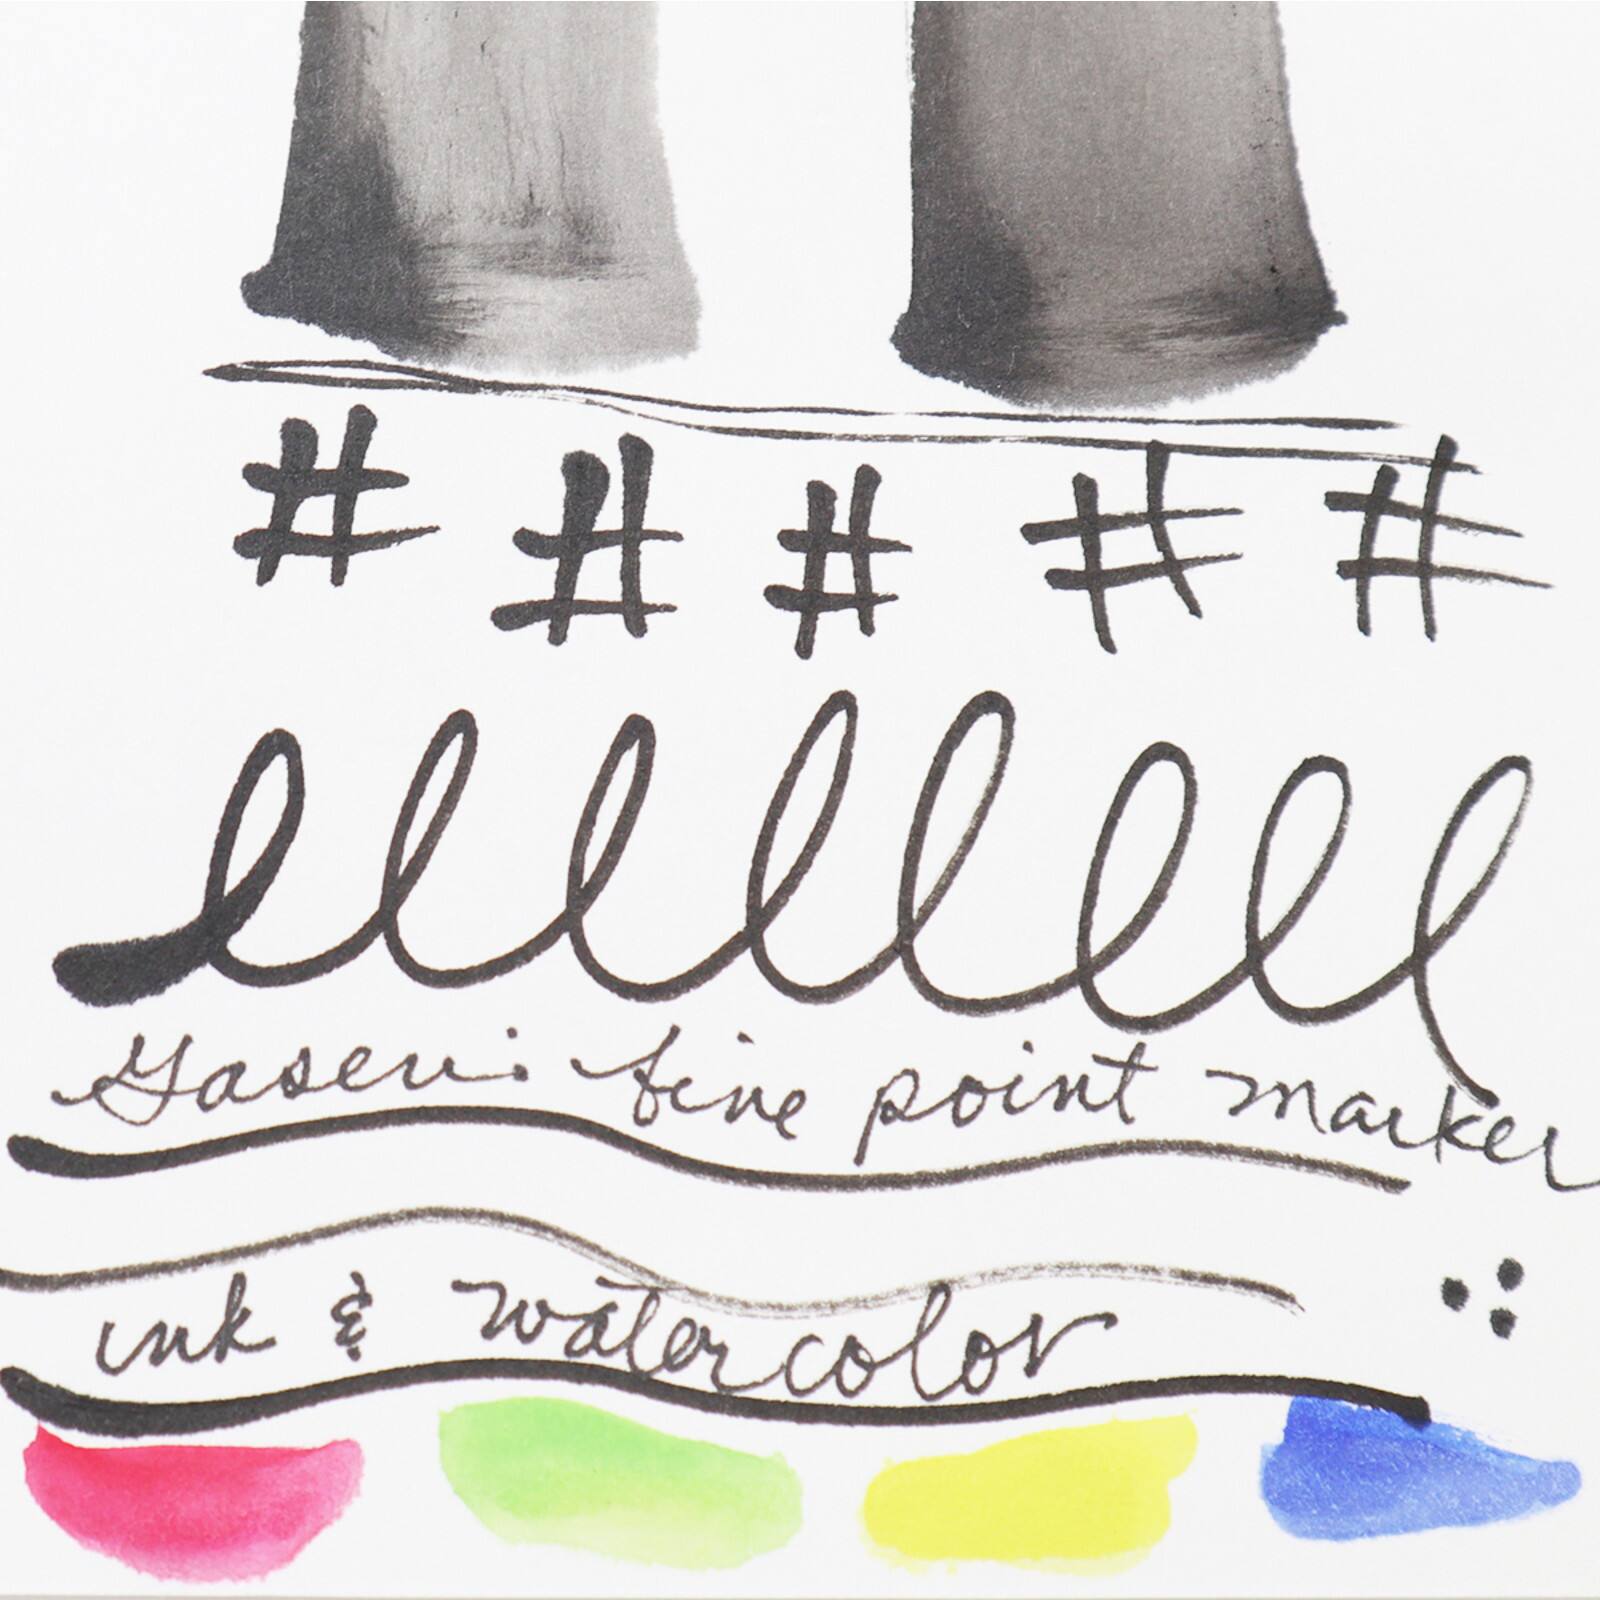 # # # # #
Gasen: fine point marker
ink & watercolor